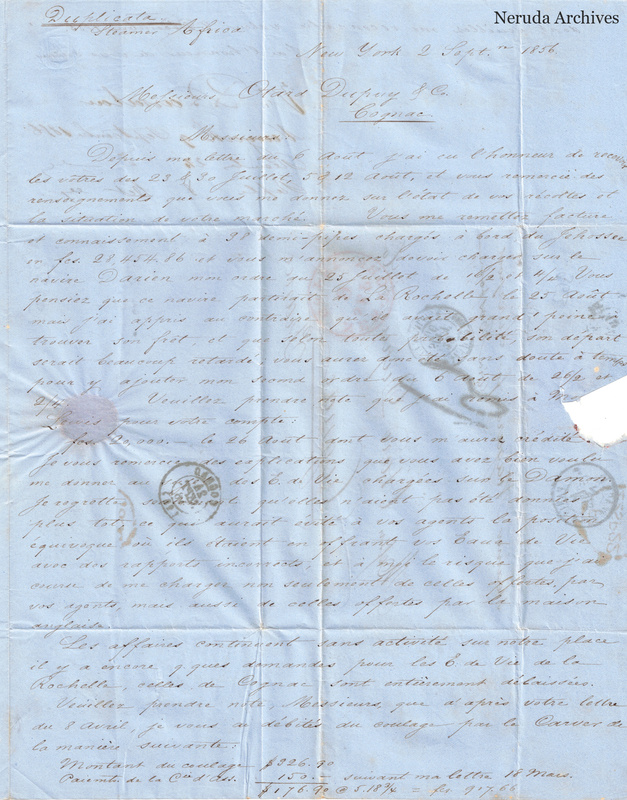 Neruda Archives
Duplicata
Steamer Africa
New York 2 Sept. 1856
Messieurs Otard Dupuy & Co.
Cognac
Messieurs
Depuis ma lettre du 6 Août j'ai eu l'honneur de recevoir
les vôtres des 23 & 30 Juillet, 5 & 12 Août, et vous remercie des
renseignements que vous me donnez sur l'état de vos récoltes et
la situation de votre marché. Vous me remettez facture
et connaissement à demi-pipes chargés à bord du
en frs. 28,454.86 et vous m'annoncez devoir charger sur le
navire Darien mon ordre du 25 Juillet de et Vous
pensiez que ce navire partirait de La Rochelle le 25 Août
mais j'ai appris au contraire qu'il avait grand' peine à
trouver son frêt et que selon toute probabilité, son départ
serait beaucoup retardé vous aurez donc été sans doute à temps
pour y ajouter mon second ordre du 6 Août de 26/2 et
2/4 Veuillez prendre note que j'ai remis à
pour votre compte:
frs. 20,000.— le 26 Août dont vous m'aurez crédité
Je vous remercie des explications que vous avez bien voulu
me donner au des E. de Vie chargées sur le Damon
Je regrette qu'elles aient pas été données
plus tôt, ce qui aurait évité à vos agents la position
équivoque où ils étaient en offrant vos Eaux de Vie
avec des rapports incorrects, et à moi le risque que j'ai
couru de me charger non seulement de celles offertes par
vos agents, mais aussi de celles offertes par la maison
anglaise.
Les affaires continuent sans activité sur notre place
il y a encore q ques demandes pour les E. de Vie de la
Rochelle, celles de Cognac sont entièrement délaissées.
Veuillez prendre note, Messieurs, que d'après votre lettre
du 8 Avril, je vous ai débités du coulage par le Carver de
la manière suivante:
Montant du coulage $326.90
Paiemt. de la Cie d'Ass. 150.— suivant ma lettre 18 Mars.
$176.90 @ 5.18¾ = frs 917.66